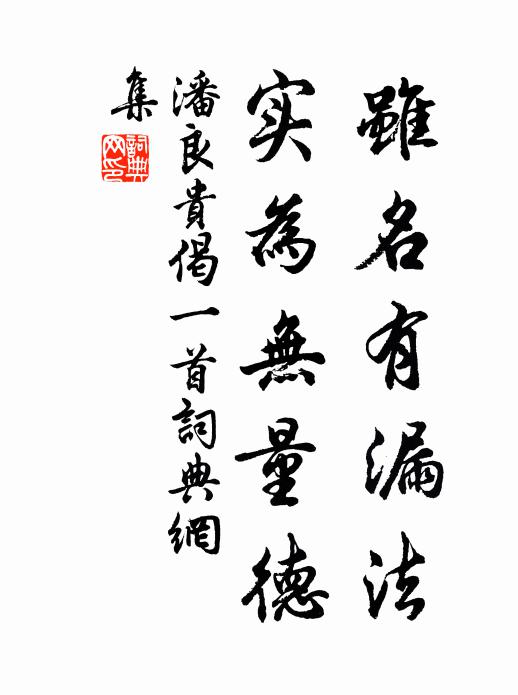 雖名有漏法
实為無量德
潘良貴偈一首詞典網
集
詞典
网印